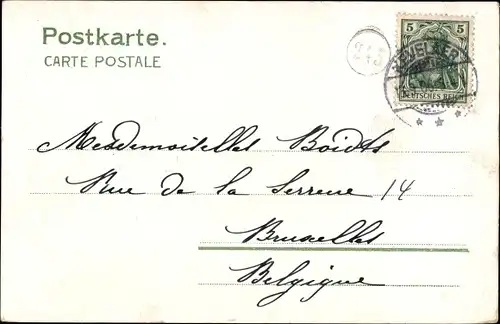 Postkarte.
CARTE POSTALE
5 5
DEUTSCHES REICH
Mesdemoiselles Boidts
Rue de la Serrure 14
Bruxelles
Belgique